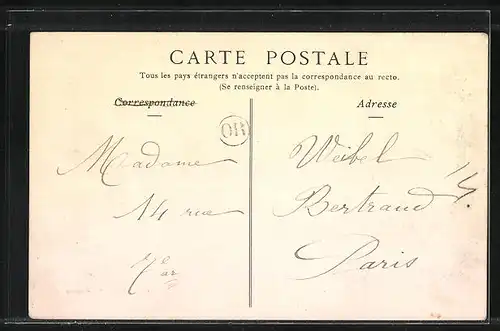 CARTE POSTALE
Tous les pays étrangers n'acceptent pas la correspondance au recto.
(Se renseigner à la Poste).
Correspondance
Adresse
OR
Madame Weibel
14 rue Bertrand 14.
Paris